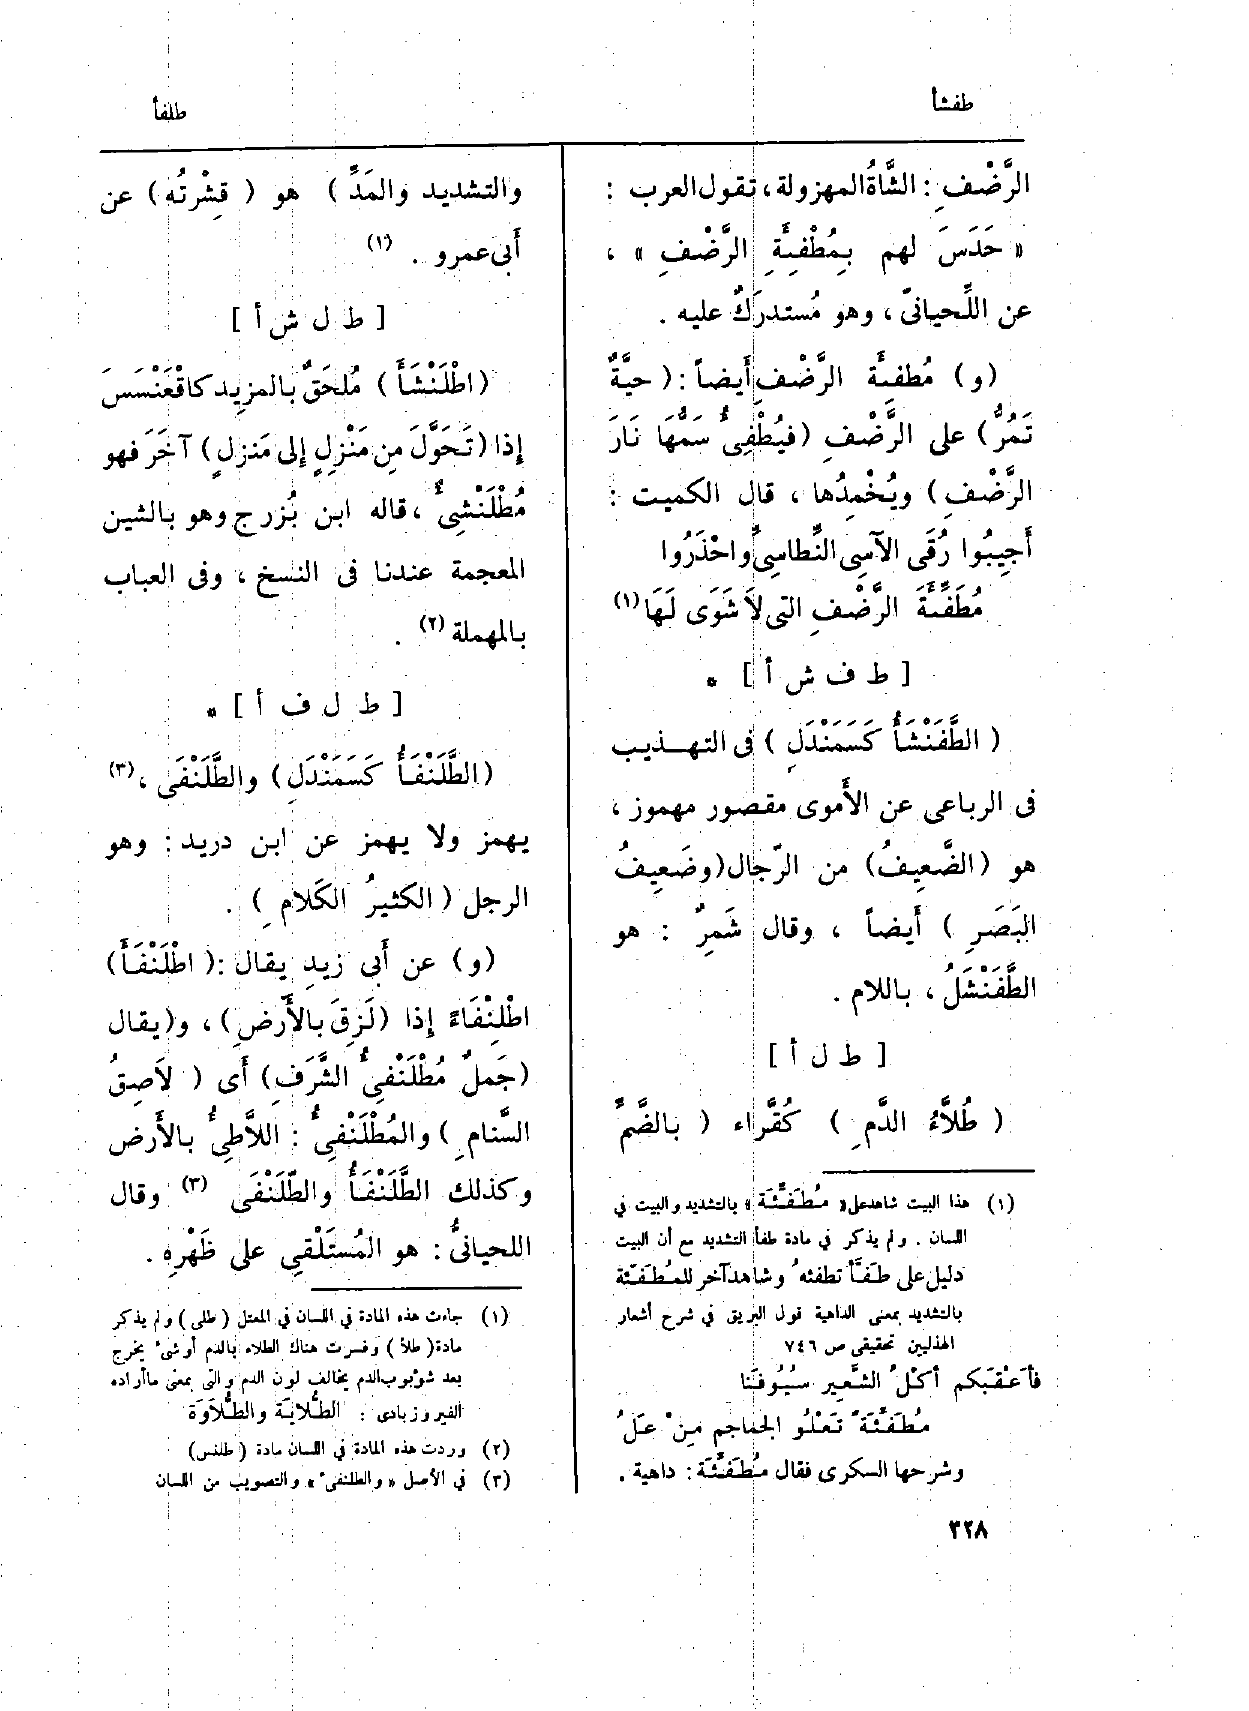 طفشأ
طلفأ
الرَّضْفِ : الشَّاةُ المهزولة، تقول العرب :
« حَدَسَ لهم بِمُطْفِئَةِ الرَّضْفِ » ،
عن اللِّحيانىّ ، وهو مُستدرَكٌ عليه .
(و) مُطفِئَة الرَّضْفِ أَيضاً : ( حيَّةٌ
تَمُرُّ) على الرَّضْفِ (فيُطْفِئُ سَمُّهَا نَارَ
الرَّضْفِ) ويُخْمِدُها ، قال الكميت :
أَجِيبُوا رُقَى الآسِى النِّطاسِىِّ واحْذَرُوا
مُطَفِّئَةَ الرَّضْفِ التى لاَ شَوَى لَهَا (١)
[ ط ف ش أ ] *
( الطَّفَنْشَأُ كَسَمَنْدَلٍ ) فى التهذيب
فى الرباعى عن الأَموى مقصور مهموز ،
هو (الضَّعِيفُ) من الرِّجال (وضَعِيفُ
البَصَرِ ) أَيضاً ، وقال شَمِرٌ : هو
الطَّفَنْشَلُ ، باللام .
[ ط ل أ ]
( طُلاَّءُ الدَّمِ ) كَقُرَّاء ( بالضَّمِّ
(١) هذا البيت شاهد على « مُطَفِّئَة » بالتشديد والبيت في
اللسان . ولم يذكر في مادة طفأ التشديد مع أن البيت
دليل على طَفَّأ تطفئه وشاهد آخر للمُطَفِّئة
بالتشديد بمعنى الداهية قول البريق في شرح أشعار
الهذليين تحقيقى ص ٧٤٦
فأعْقَبكم أكْلُ الشَّعِيرِ سُيُوفَنَا
مُطَفِّئَةً تَعْلُو الجماجم مِنْ عَلُ
وشرحها السكرى فقال مُطَفِّئَة : داهية .
والتشديد والمَدِّ ) هو ( قِشْرتُه ) عن
أَبى عمرو . (١)
[ ط ل ش أ ]
(اطْلَنْشَأَ) مُلحَقٌ بالمزيد كاقْعَنْسَسَ
إذا (تَحَوَّلَ مِن مَنْزِلٍ إلى مَنزلٍ) آخَرَ فهو
مُطْلَنْشِئٌ ، قاله ابن بُزرج وهو بالشين
المعجمة عندنا فى النسخ ، وفى العباب
بالمهملة (٢) .
[ ط ل ف أ ] *
(الطَّلَنْفَأُ كَسَمَنْدَلٍ ) والطَّلَنْفَى ، (٣)
يهمز ولا يهمز عن ابن دريد : وهو
الرجل ( الكثيرُ الكَلامِ ) .
(و) عن أَبى زيدٍ يقال : ( اطْلَنْفَأَ)
اطْلِنْفَاءً إذا (لَزِقَ بالأَرضِ) ، و(يقال
(جَملٌ مُطْلَنْفِئُ الشَّرَفِ) أَى ( لاَصِقُ
السَّنامِ ) والمُطْلَنْفِئُ : اللاَّطِئُ بالأَرض
وكذلك الطَّلَنْفَأُ والطَّلَنْفَى (٣) وقال
اللحيانىُّ : هو المُستَلْقِى على ظَهْرِه .
(١) جاءت هذه المادة في اللسان في المعتل ( طلى ) ولم يذكر
مادة ( طلأ ) وفسرت هناك الطلاء بالدم أو شىء يخرج
بعد شؤبوب الدم يخالف لون الدم والتى بمعنى ما أراده
الفيروزبادى : الطُّلايَة والطُّلاوَة
(٢) وردت هذه المادة في اللسان مادة ( طلنس)
(٣) في الأصل « والطلنفىء » والتصويب من اللسان
٣٢٨